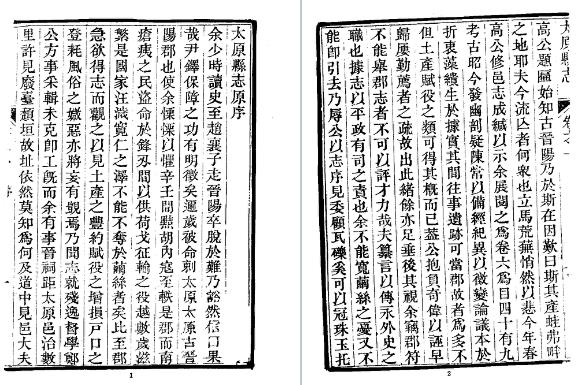 太原縣志原序
余少時讀史至趙襄子走晉陽卒脫於難乃豁然信口果
哉尹鐸保障之功有明徵矣運歲被命刺太原太原古晉
陽郡也使余慄慄以懼辛壬間黠胡內寇至軼是郡而南
瘡痍之民盜命於鋒刃間以供荷戈征輸之役越數歲滋
繁是國家汪濊寬仁之澤不能不奪於繭絲者矣比至郡
急欲得志而觀之以見土產之豐約賦役之增損戶口之
登耗風俗之媺惡亦將妄有覬焉乃聞志就殘逸督學鄭
公方事采輯未克卽工旣而余有事晉祠距太原邑治數
里許見廢臺頹垣故址依然莫知為何及道中見邑大夫
1
太原縣志
卷之一
高公題匾始知古晉陽乃於斯在因歎曰斯其產蛙弗畔
之地耶夫今流亾者何衆也立馬荒蕪悄然以悲今年春
高公修邑志成緘以示余展閱之為卷六為目四十有九
考古昭今發幽剖疑陳常以備經紀異以微變論議本於
折衷藻繢生於據實其間往事遺跡可當郡故者為多不
但土產賦役之類可得其概而已蓋公抱負奇偉以誣早
歸屢勤薦者之疏故出此緒餘亦足垂後其視余竊郡符
不能舉郡志者不可以評才力哉夫纂言以傳示外史之
職也據志以平政有司之責也余不能寬繭絲之憂又不
能卽引去乃辱公以志序見委顧瓦礫矣可以冠珠玉托
2